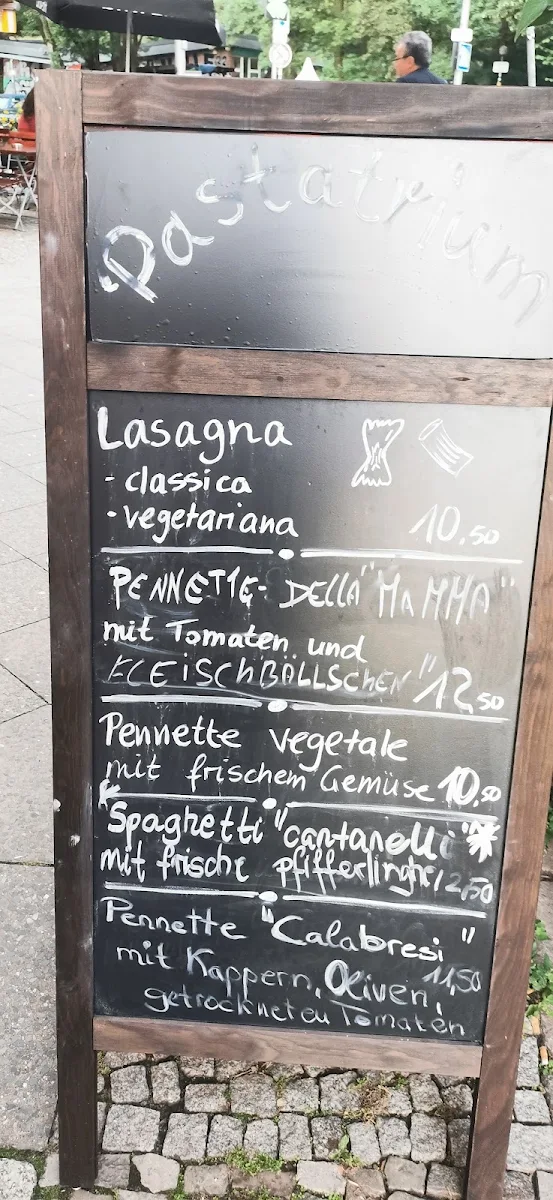 Pastatrium
Lasagna
- classica
- vegetariana 10.50
PENNETTE- DELLA "MAMMA"
mit Tomaten und
FLEISCHBÄLLSCHEN" 12,50
Pennette vegetale
mit frischem Gemüse 10.50
Spaghetti "cantarelli"
mit frische pfifferlinghe 12,50
Pennette "Calabresi"
mit Kappern, Oliven, 11,50
getrockneten Tomaten